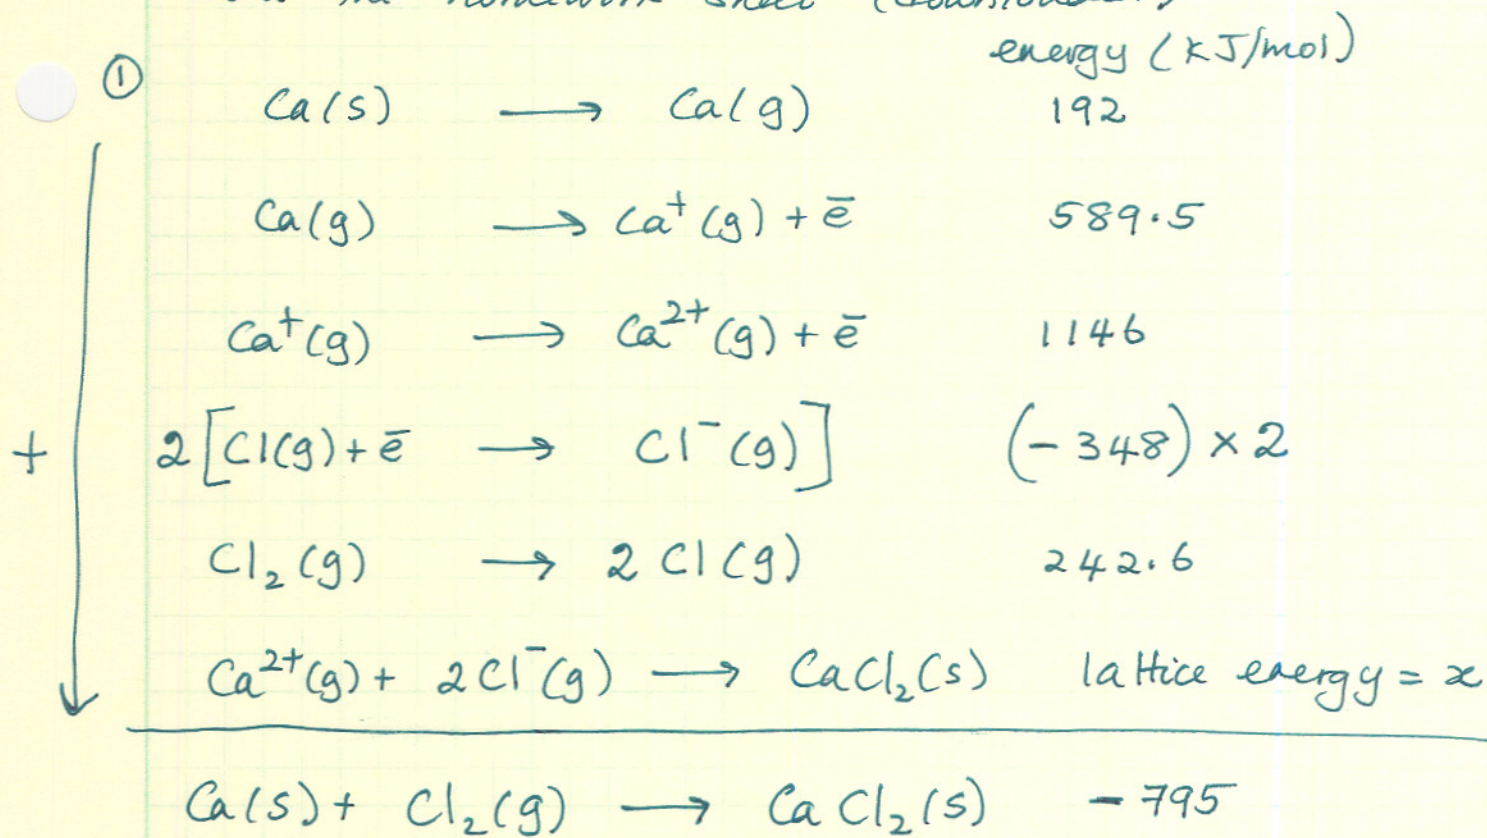 the homework sheet
energy (kJ/mol)
① Ca(s) → Ca(g) 192
Ca(g) → Ca⁺(g) + e̅ 589.5
Ca⁺(g) → Ca²⁺(g) + e̅ 1146
+ 2[Cl(g) + e̅ → Cl⁻(g)] (-348) × 2
Cl₂(g) → 2 Cl(g) 242.6
Ca²⁺(g) + 2Cl⁻(g) → CaCl₂(s) lattice energy = x
Ca(s) + Cl₂(g) → CaCl₂(s) - 795